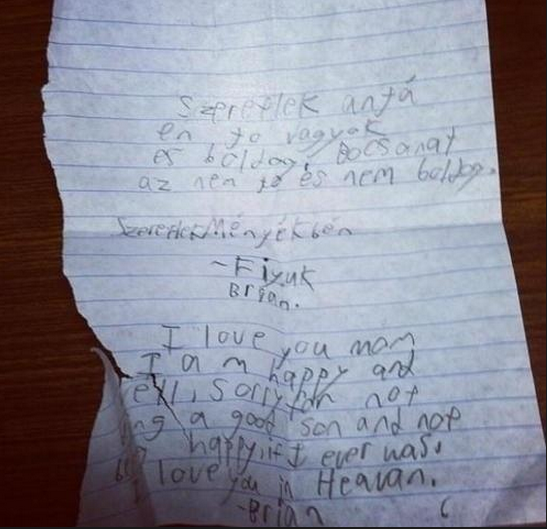 Szeretlek antá
en jo vagyok
es boldog, Bocsanat
az nem jo és nem boldog.
Szeretlek Ményékbén
~Fiyuk
Brian.
I love you mom
I am happy and
ell, sorry for not
ng a good son and not
happy, if I ever was.
love you in Heavan.
-Brian